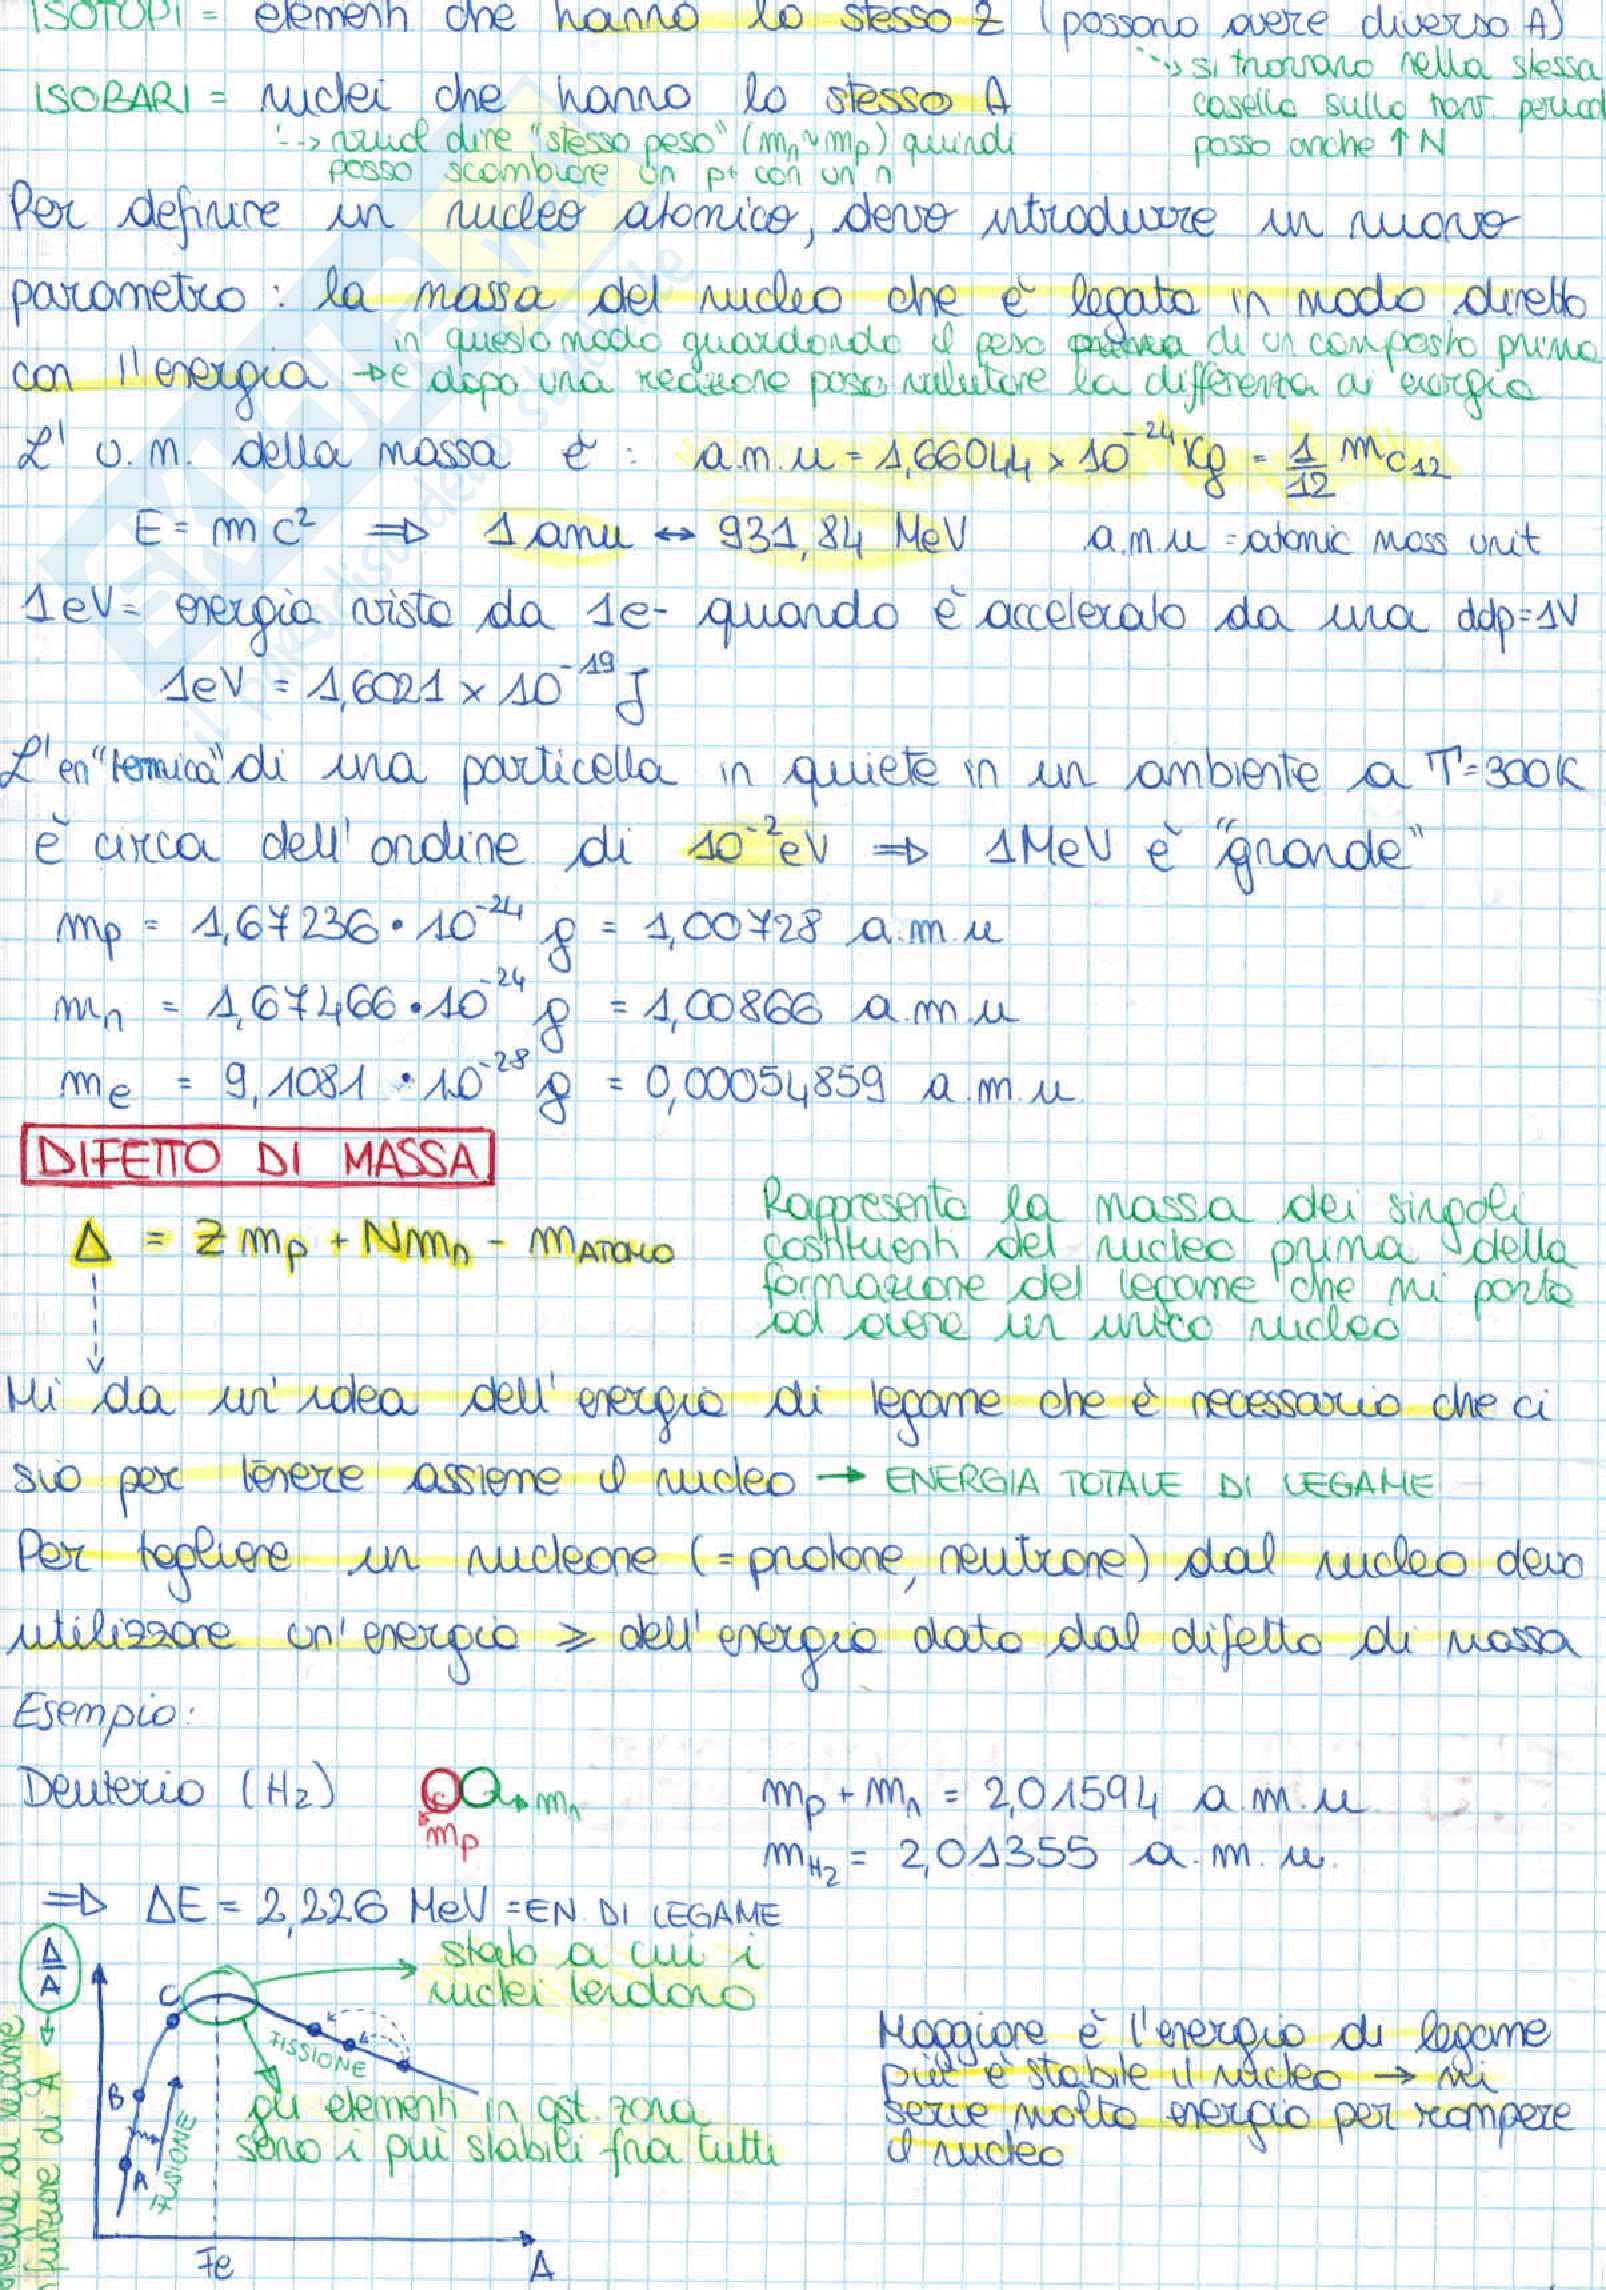 ISOTOPI = elementi che hanno lo stesso Z (possono avere diverso A)
↳ si trovano nella stessa
casella sulla tav. period
posso anche ↑ N
ISOBARI = nuclei che hanno lo stesso A
↳ vuol dire "stesso peso" (mn ~ mp) quindi
posso scambiare un p+ con un n
Per definire un nucleo atomico, devo introdurre un nuovo
parametro: la massa del nucleo che è legata in modo diretto
con l'energia → in questo modo guardando il peso di un composto prima
e dopo una reazione posso valutare la differenza di energia
L' u.m. della massa è: a.m.u = 1,66044 × 10⁻²⁴ Kg = 1/12 mC12
E = mc² ⇒ 1 amu ↔ 931,84 MeV a.m.u = atomic mass unit
1eV = energia vista da 1e- quando è accelerato da una ddp=1V
1eV = 1,6021 × 10⁻¹⁹ J
L'en "termica" di una particella in quiete in un ambiente a T=300K
è circa dell'ordine di 10⁻² eV ⇒ 1MeV è "grande"
mp = 1,67236 • 10⁻²⁴ g = 1,00728 a.m.u
mn = 1,67466 • 10⁻²⁴ g = 1,00866 a.m.u
me = 9,1081 • 10⁻²⁸ g = 0,00054859 a.m.u
DIFETTO DI MASSA
Δ = Z mp + N mn - mATOMO
Rappresenta la massa dei singoli
costituenti del nucleo prima della
formazione del legame che mi porta
ad avere un unico nucleo
Mi da un'idea dell'energia di legame che è necessario che ci
sia per tenere assieme il nucleo → ENERGIA TOTALE DI LEGAME
Per togliere un nucleone (= protone, neutrone) dal nucleo devo
utilizzare un'energia ≥ dell'energia data dal difetto di massa
Esempio:
Deuterio (H2) mn mp + mn = 2,01594 a.m.u
mp mH2 = 2,01355 a.m.u.
⇒ ΔE = 2,226 MeV = EN. DI LEGAME
Δ/A
stato a cui i
nuclei tendono
C
B
A
FISSIONE
FUSIONE
gli elementi in qst. zona
sono i più stabili fra tutti
Maggiore è l'energia di legame
più è stabile il nucleo → mi
serve molta energia per rompere
il nucleo
di legame
funzione di A
Fe A
SKUOLA
il paradiso dello studente